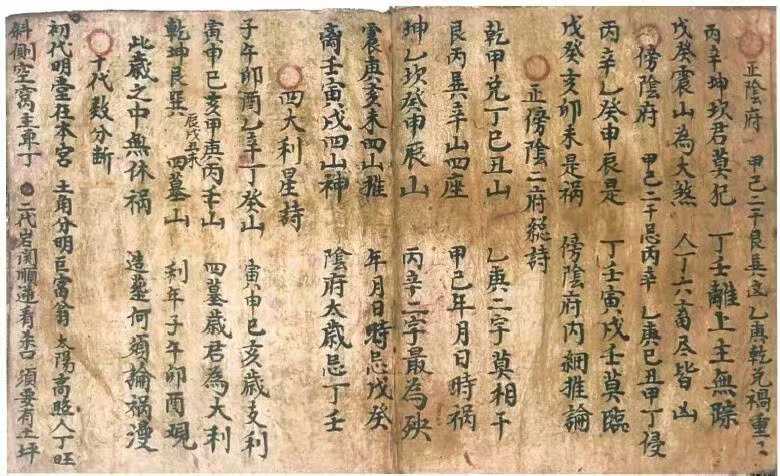 正陰府 甲己二干艮巽 乙庚乾兌禍重重
丙辛坤坎君莫犯 丁壬離上主無踪
戊癸震山為大煞 人丁六畜尽皆凶
傍陰府 甲己二干忌丙辛 乙庚巳丑甲丁侵
丙辛乙癸申辰是 丁壬寅戌壬莫臨
戊癸亥卯未是禍 傍陰府內細推論
正傍陰二府總詩
乾甲兌丁巳丑山 乙庚二字莫相干
艮丙巽辛山四座 甲己年月日時祸
坤乙坎癸申辰山 丙辛二字最為殃
震庚亥未四山推 年月日時忌戊癸
离壬寅戌四山神 陰府太歲忌丁壬
四大利星詩
子午卯酉乙辛丁癸山 寅申巳亥歲支利
寅申巳亥甲庚丙壬山 四墓歲君為大利
乾坤艮巽辰戌丑未四墓山 利年子午卯酉覌
此歲之中無休祸 造塟何須論祸漫
十代数分断
初代明堂在本宮 土角分明巨富翁 太陽高照人丁旺
斜側空窩主車丁 二代岩闵順道有 須要有土坪